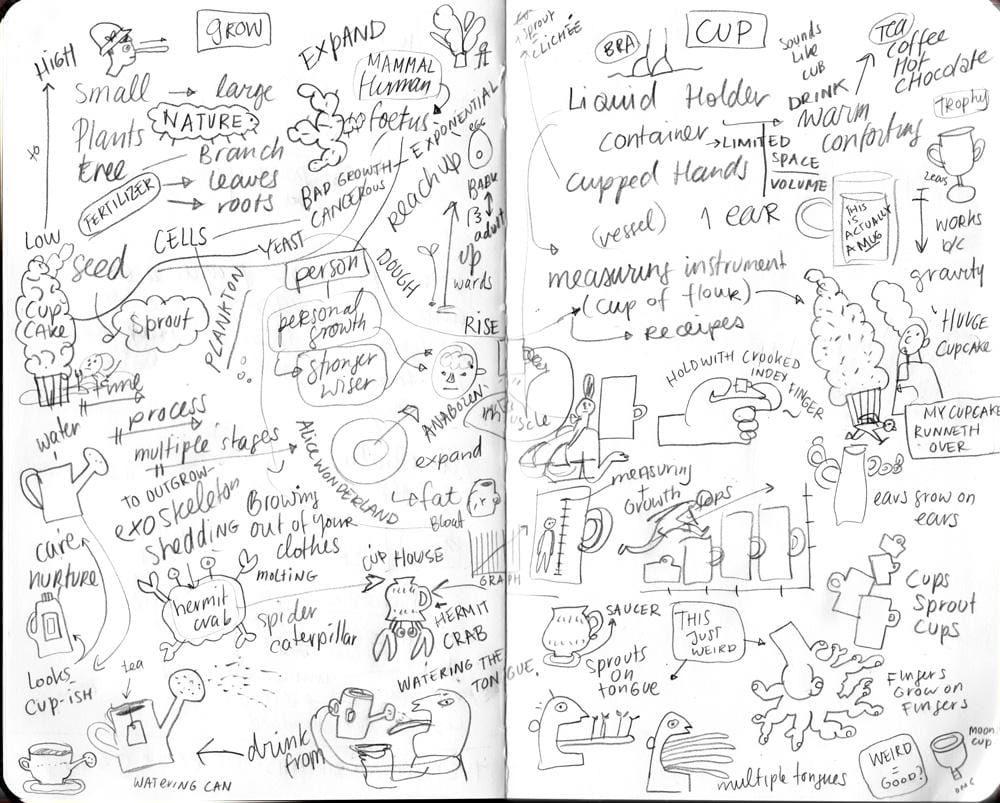 GROW
HIGH
to
LOW
EXPAND
small → large
Plants
NATURE
tree
Branch
leaves
roots
FERTILIZER
MAMMAL
Human
foetus
BAD GROWTH
CANCEROUS
EXPONENTIAL
REACH UP
egg
BABY
adult
up
wards
CELLS
YEAST
DOUGH
RISE
seed
Sprout
PLANKTON
CUP
CAKE
person
personal
growth
stronger
wiser
ANABOLEN
muscle
time
process
multiple stages
water
TO OUTGROW
exoskeleton
shedding
Browing
out of your
clothes
MOLTING
ALICE WONDERLAND
expand
fat
Bloat
care
nurture
Looks
cup-ish
hermit
crab
spider
caterpillar
CUP HOUSE
HERMIT
CRAB
GRAPH
tea
WATERING CAN
drink
from
WATERING THE
TONGUE.
Sprout
CLICHÉE
BRA
CUP
Sounds
Like
CUB
TEA
Coffee
Hot
CHOCOLATE
Liquid Holder
DRINK
container
LIMITED
SPACE
VOLUME
warm
comforting
Trophy
2 ears
cupped Hands
(vessel)
1 EAR
THIS
IS
ACTUALLY
A MUG
WORKS
b/c
gravity
measuring instrument
(cup of flour)
Receipes
HUUGE
CUPCAKE
HOLD WITH CROOKED
INDEY FINGER
MY CUPCAKE
RUNNETH
OVER
measuring
+
growth
cups
ears grow on
ears
Cups
Sprout
Cups
SAUCER
THIS
JUST
WEIRD
sprouts
on
tongue
Fingers
Grow on
Fingers
multiple tongues
WEIRD
=
GOOD?
moon
cup
OMG